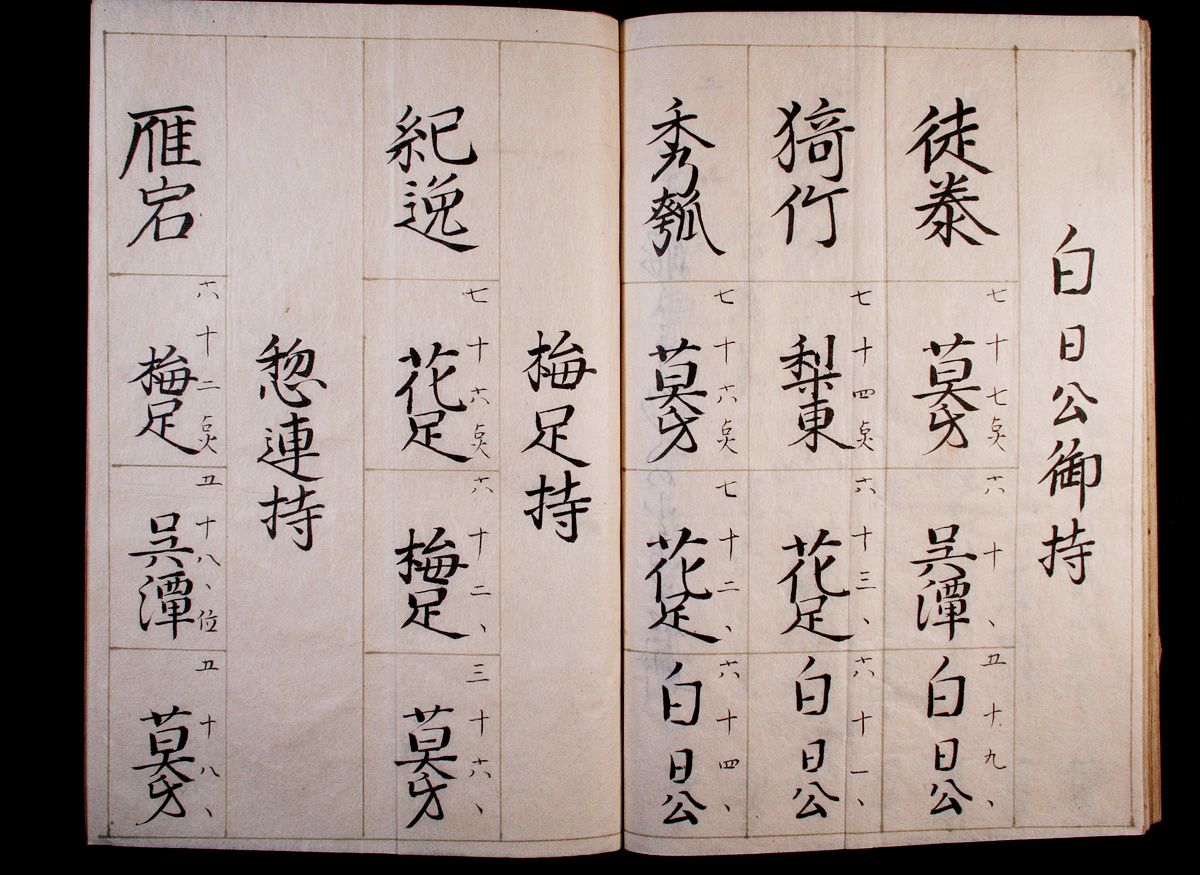 白日公御持
徒泰
七十七点
莫牙
六十、
呉潭
五十九、
白日公
猗竹
七十四点
梨東
六十三、
花足
六十一、
白日公
秀瓠
七十六点
莫牙
七十二、
花足
六十四、
白日公
梅足持
紀逸
七十六点
花足
六十二、
梅足
三十六、
莫牙
惣連持
雁宕
六十二点
梅足
五十八、位
呉潭
五十八、
莫牙